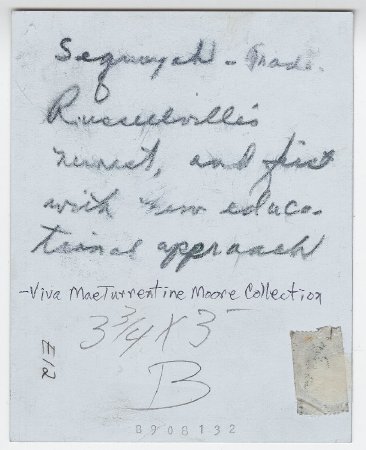 Sequoyah - Made.
Russellville's
newest, and first
with new educa-
tional approach
-Viva Mae Turrentine Moore Collection
3 3/4 X 3-
B
E12
B908132